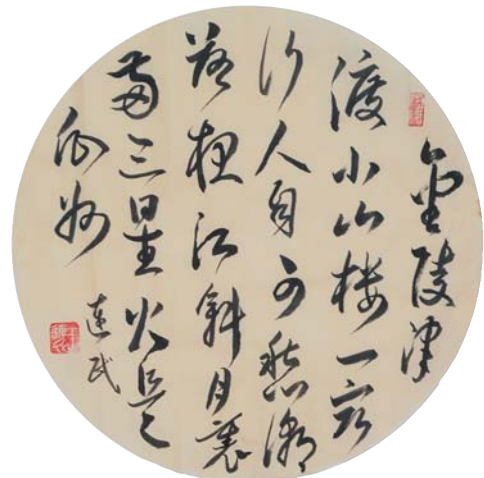 金陵津
渡小山楼一宿
行人自可愁潮
落夜江斜月裏
兩三星火是
瓜州